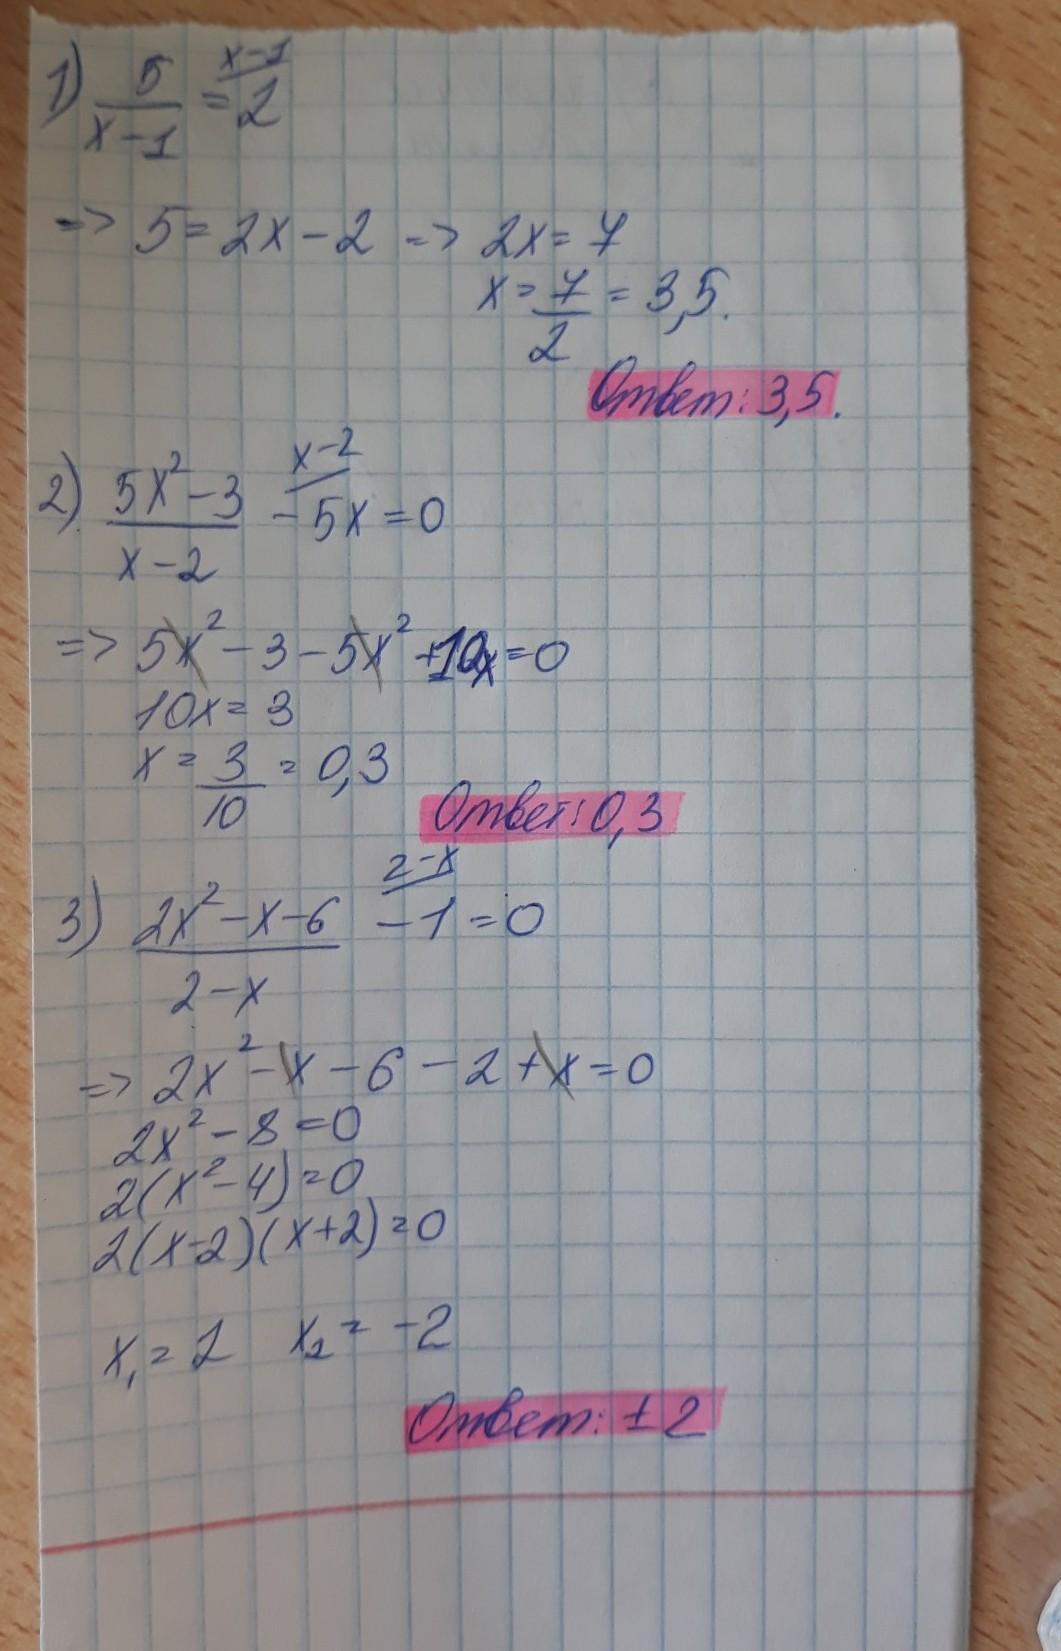 1) 5/(x-1) = 2 x-1
=> 5 = 2x - 2 => 2x = 7
x = 7/2 = 3,5.
Ответ: 3,5.
2) (5x² - 3)/(x - 2) - 5x = 0 x-2
=> 5x² - 3 - 5x² + 10x = 0
10x = 3
x = 3/10 = 0,3
Ответ: 0,3
3) (2x² - x - 6)/(2 - x) - 1 = 0 2-x
=> 2x² - x - 6 - 2 + x = 0
2x² - 8 = 0
2(x² - 4) = 0
2(x-2)(x+2) = 0
x₁ = 2 x₂ = -2
Ответ: ±2